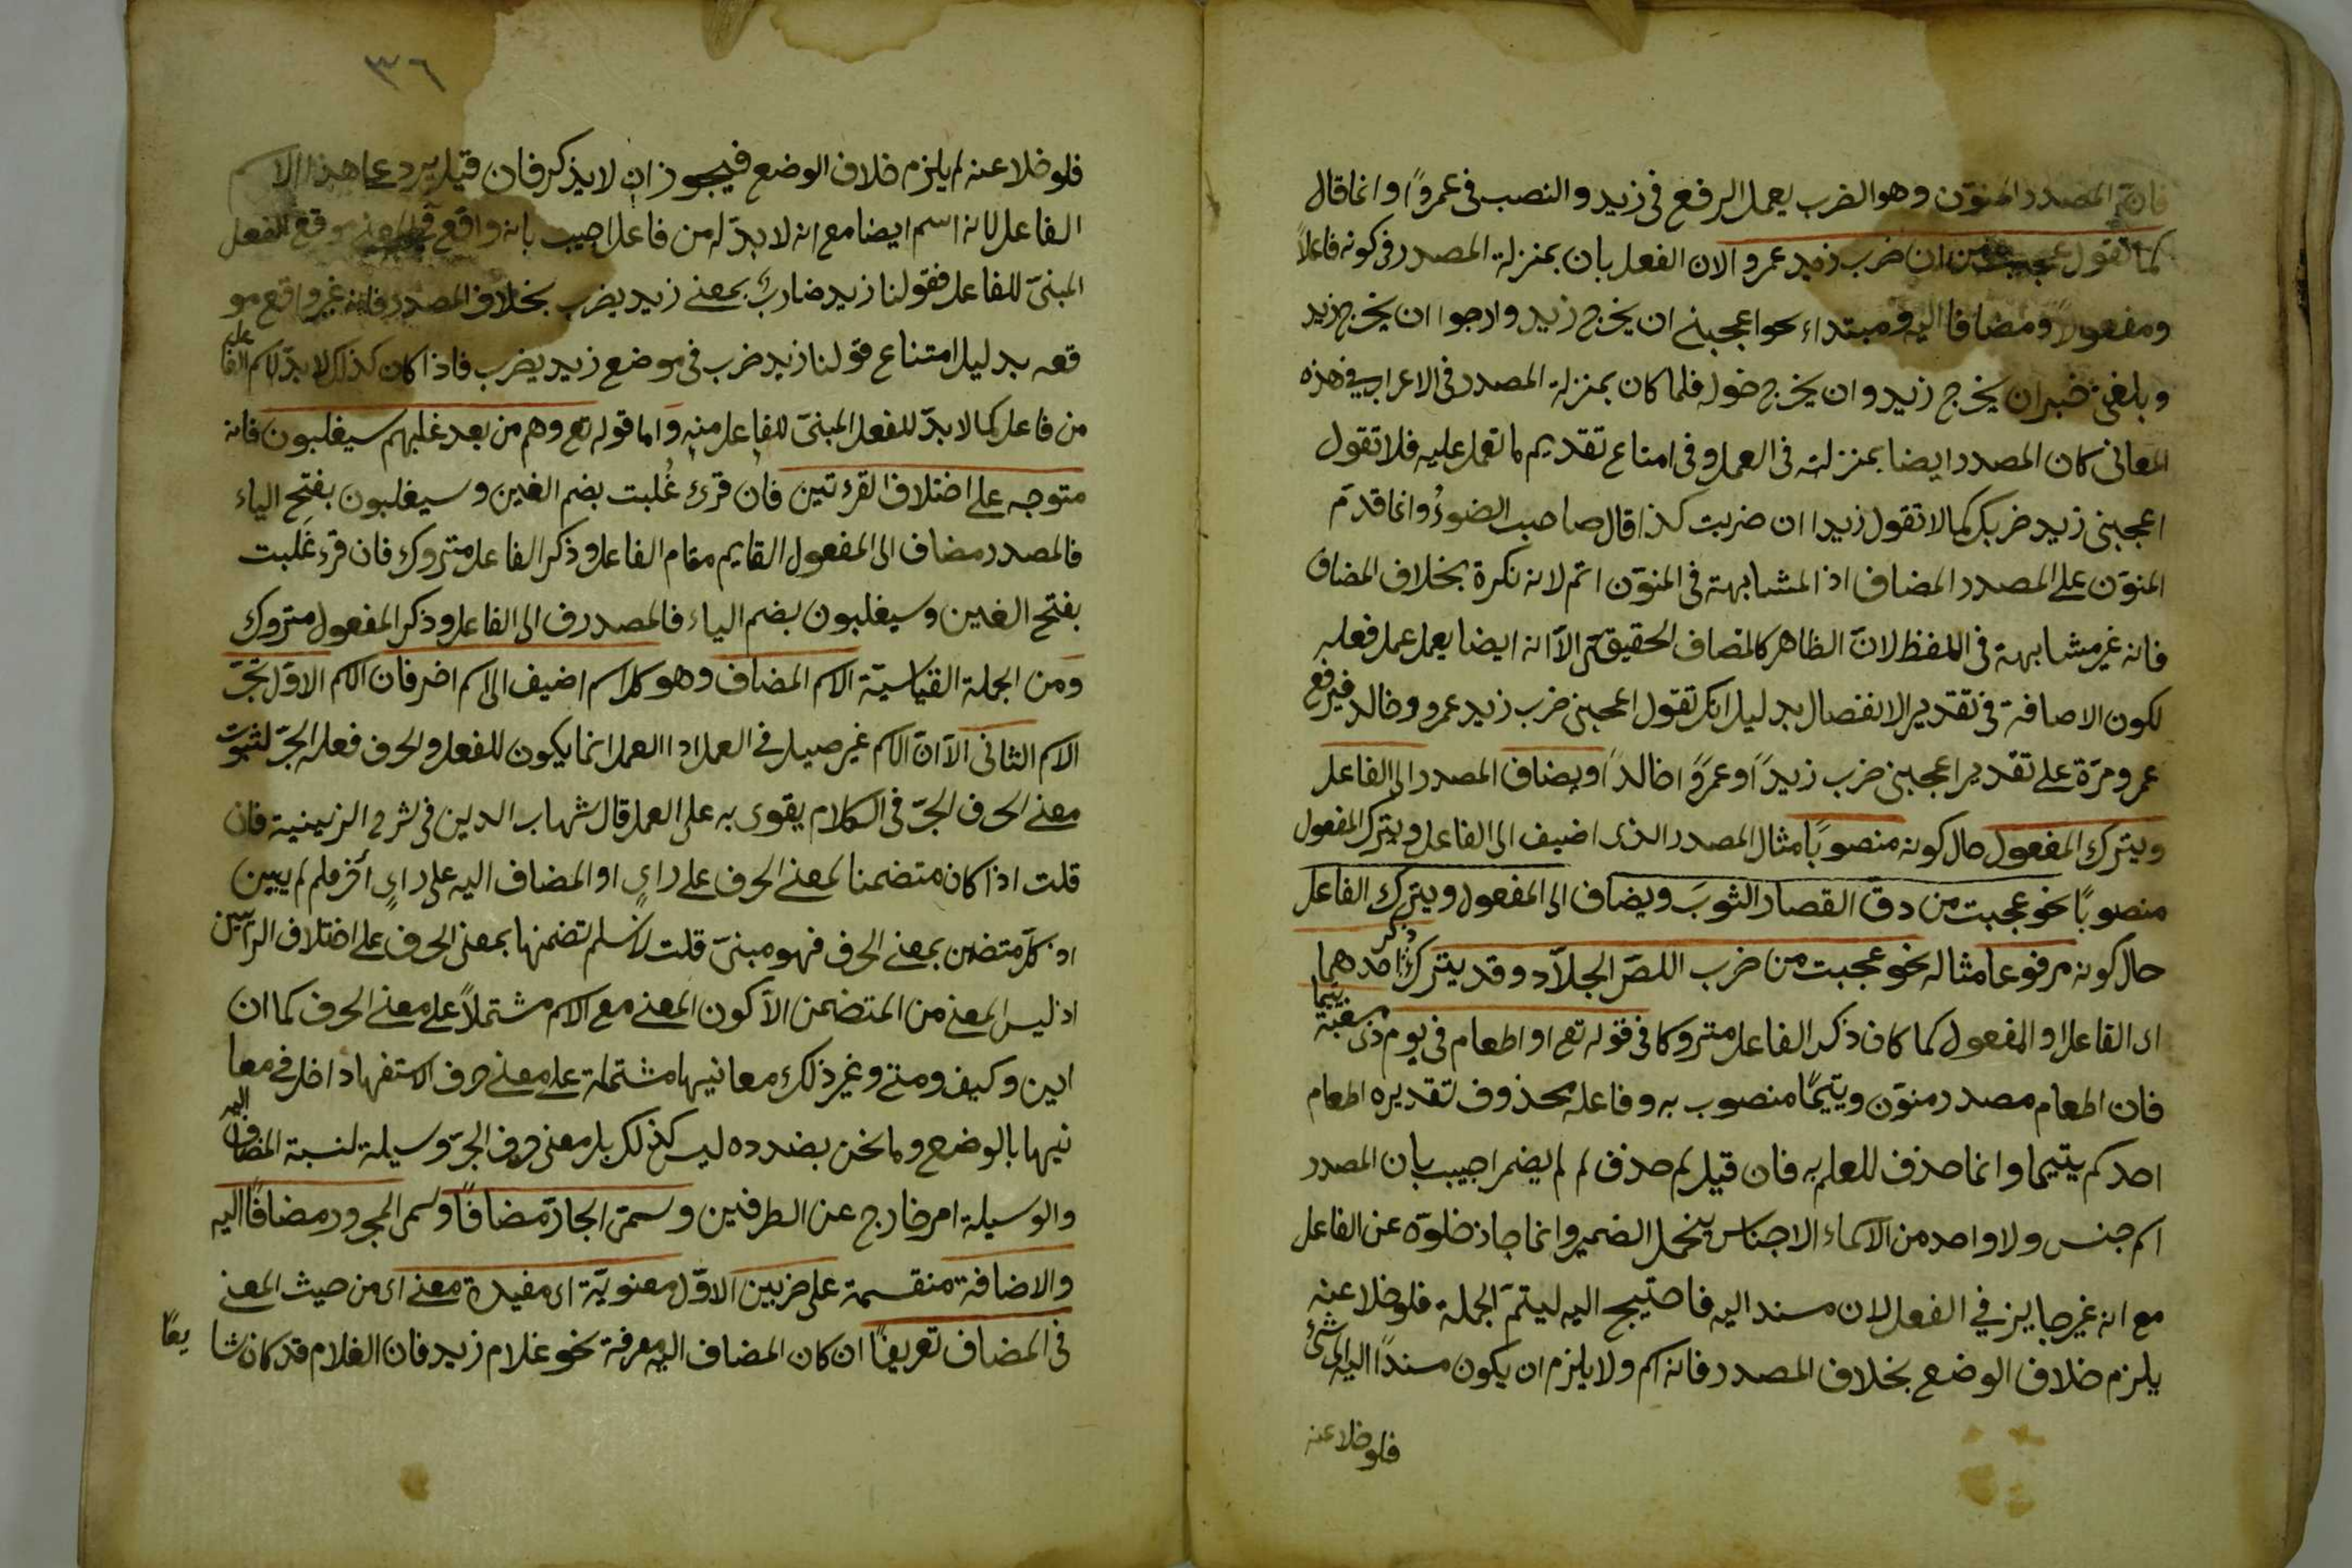 فان المصدر المنوّن وهو الضرب يعمل الرفع فى زيد والنصب فى عمروًا وانما قال
كما تقول عجبت من ان ضرب زيد عمروا لان الفعل بان بمنزلة المصدر فى كونه فاعلاً
ومفعولاً ومضافا اليه ومبتداء نحو اعجبنے ان يخرج زيد وارجوا ان يخرج زيد
وبلغنى خبر ان يخرج زيد وان يخرج خوله فلما كان بمنزلة المصدر فى الاعراب فے هذه
المعانى كان المصدر ايضا بمنزلته فى العمل وفى امتناع تقديم ما تعمل عليه فلا تقول
اعجبنى زيد ضربك كما لا تقول زيدا ان ضربت كذا قال صاحب الضوءُ وانما قدّم
المنوّن على المصدر المضاف اذ المشابهة فى المنوّن اتم لانه نكرة بخلاف المضاف
فانه غير مشابهة فى اللفظ لانّ الظاهر كالمضاف الحقيقىّ الاّ انه ايضا يعمل عمل فعله
لكون الاضافة فى تقدير الانفصال بدليل انك تقول اعجبنى ضرب زيد عمرو وخالد فيرفع
عمرو مرّة على تقدير اعجبنى ضرب زيدًا وعمروً اخالدًا ويضاف المصدر الى الفاعل
ويترك المفعول حال كونه منصوبًا مثال المصدر الذى اضيف الى الفاعل ويترك المفعول
منصوبًا نحو عجبت من دقّ القصار الثوبَ ويضاف الى المفعول ويترك الفاعل
حال كونه مرفوعا مثاله نحو عجبت من ضرب اللصّ الجلاّد وقد يترك ذكر احدهما
اى الفاعل او المفعول كما كان ذكر الفاعل متروكا فى قوله تع او اطعام فى يوم ذى مسغبة يتيما
فان اطعام مصدر منوّن ويتيمًا منصوب به وفاعله محذوف تقديره اطعام
احدكم يتيما وانما حذف للعلم به فان قيل لم حذف لم لم يضمر اجيب بان المصدر
اسم جنس ولا واحد من الاسماء الاجناس يتحمل الضمير وانما جاز خلوّه عن الفاعل
مع انه غير جايز في الفعل لان مسند اليه فاحتيج اليه ليتمّ الجملة فلو خلا عنه
يلزم خلاف الوضع بخلاف المصدر فانه اسم ولا يلزم ان يكون مسندًا اليه الى شئ
فلو خلا عنه
٣٦
فلو خلا عنه لم يلزم خلاف الوضع فيجوز ان لا يذكر فان قيل يرد على هذا الاسم
الفاعل لانه اسم ايضا مع انه لا بدّ له من فاعل اجيب بانه واقع موقع الفعل
المبنىّ للفاعل فقولنا زيد ضاربٌ بمعنے زيد يضرب بخلاف المصدر فانه غير واقع مو
قعه بدليل امتناع قولنا زيد ضرب فى موضع زيد يضرب فاذا كان كذلك لا بدّ لاسم الفاعل
من فاعل كما لا بدّ للفعل المبنىّ للفاعل منه واما قوله تع وهم من بعد غلبهم سيغلبون فانه
متوجه على اختلاف القرءتين فان قرئ غُلبت بضم الغين وسيغلبون بفتح الياء
فالمصدر مضاف الى المفعول القايم مقام الفاعل وذكر الفاعل متروك فان قرء غَلبت
بفتح الغين وسيغلبون بضم الياء فالمصدر ف الى الفاعل وذكر المفعول متروك
ومن الجملة القياسيّة الاسم المضاف وهو كل اسم اضيف الى اسم اخر فان الاسم الاوّل يجرّ
الاسم الثانى الاّ انّ الاسم غير صيل فے العمل اذا العمل انما يكون للفعل والحرف فعله الجرّ لثبوت
معنے الحرف الجرّ فى الكلام يقوى به على العمل قال شهاب الدين فى شرح الزينية فان
قلت اذا كان متضمنا لمعنے الحرف على راىٍ او المضاف اليه على راىٍ آخر فلم لم يبين
اذ كلّ متضمن بمعنے الحرف فهو مبنىّ قلت لا نسلم تضمنها بمعنى الحرف على اختلاف الرأيين
اذ ليس المعنے من المتضمن الاّ كون المعنے مع الاسم مشتملاً على معنے الحرف كما ان
اين وكيف ومتے وغير ذلك معانيها مشتملة على معنے حرف الاستفهاد داخل فے معا
نيها بالوضع وما نحن بصدده ليس كذلك بل معنى حرف الجرّ وسيلة لنسبة المضاف اليه
والوسيلة امر خارج عن الطرفين وسمى الجارّ مضافًا وسمى المجرور مضافًا اليه
والاضافة منقسمة على ضربين الاوّل معنويّة اى مفيدة معنے اى من حيث المعنے
فى المضاف تعريفًا ان كان المضاف اليه معرفة نحو غلام زيد فان الغلام قد كان شا يعًا